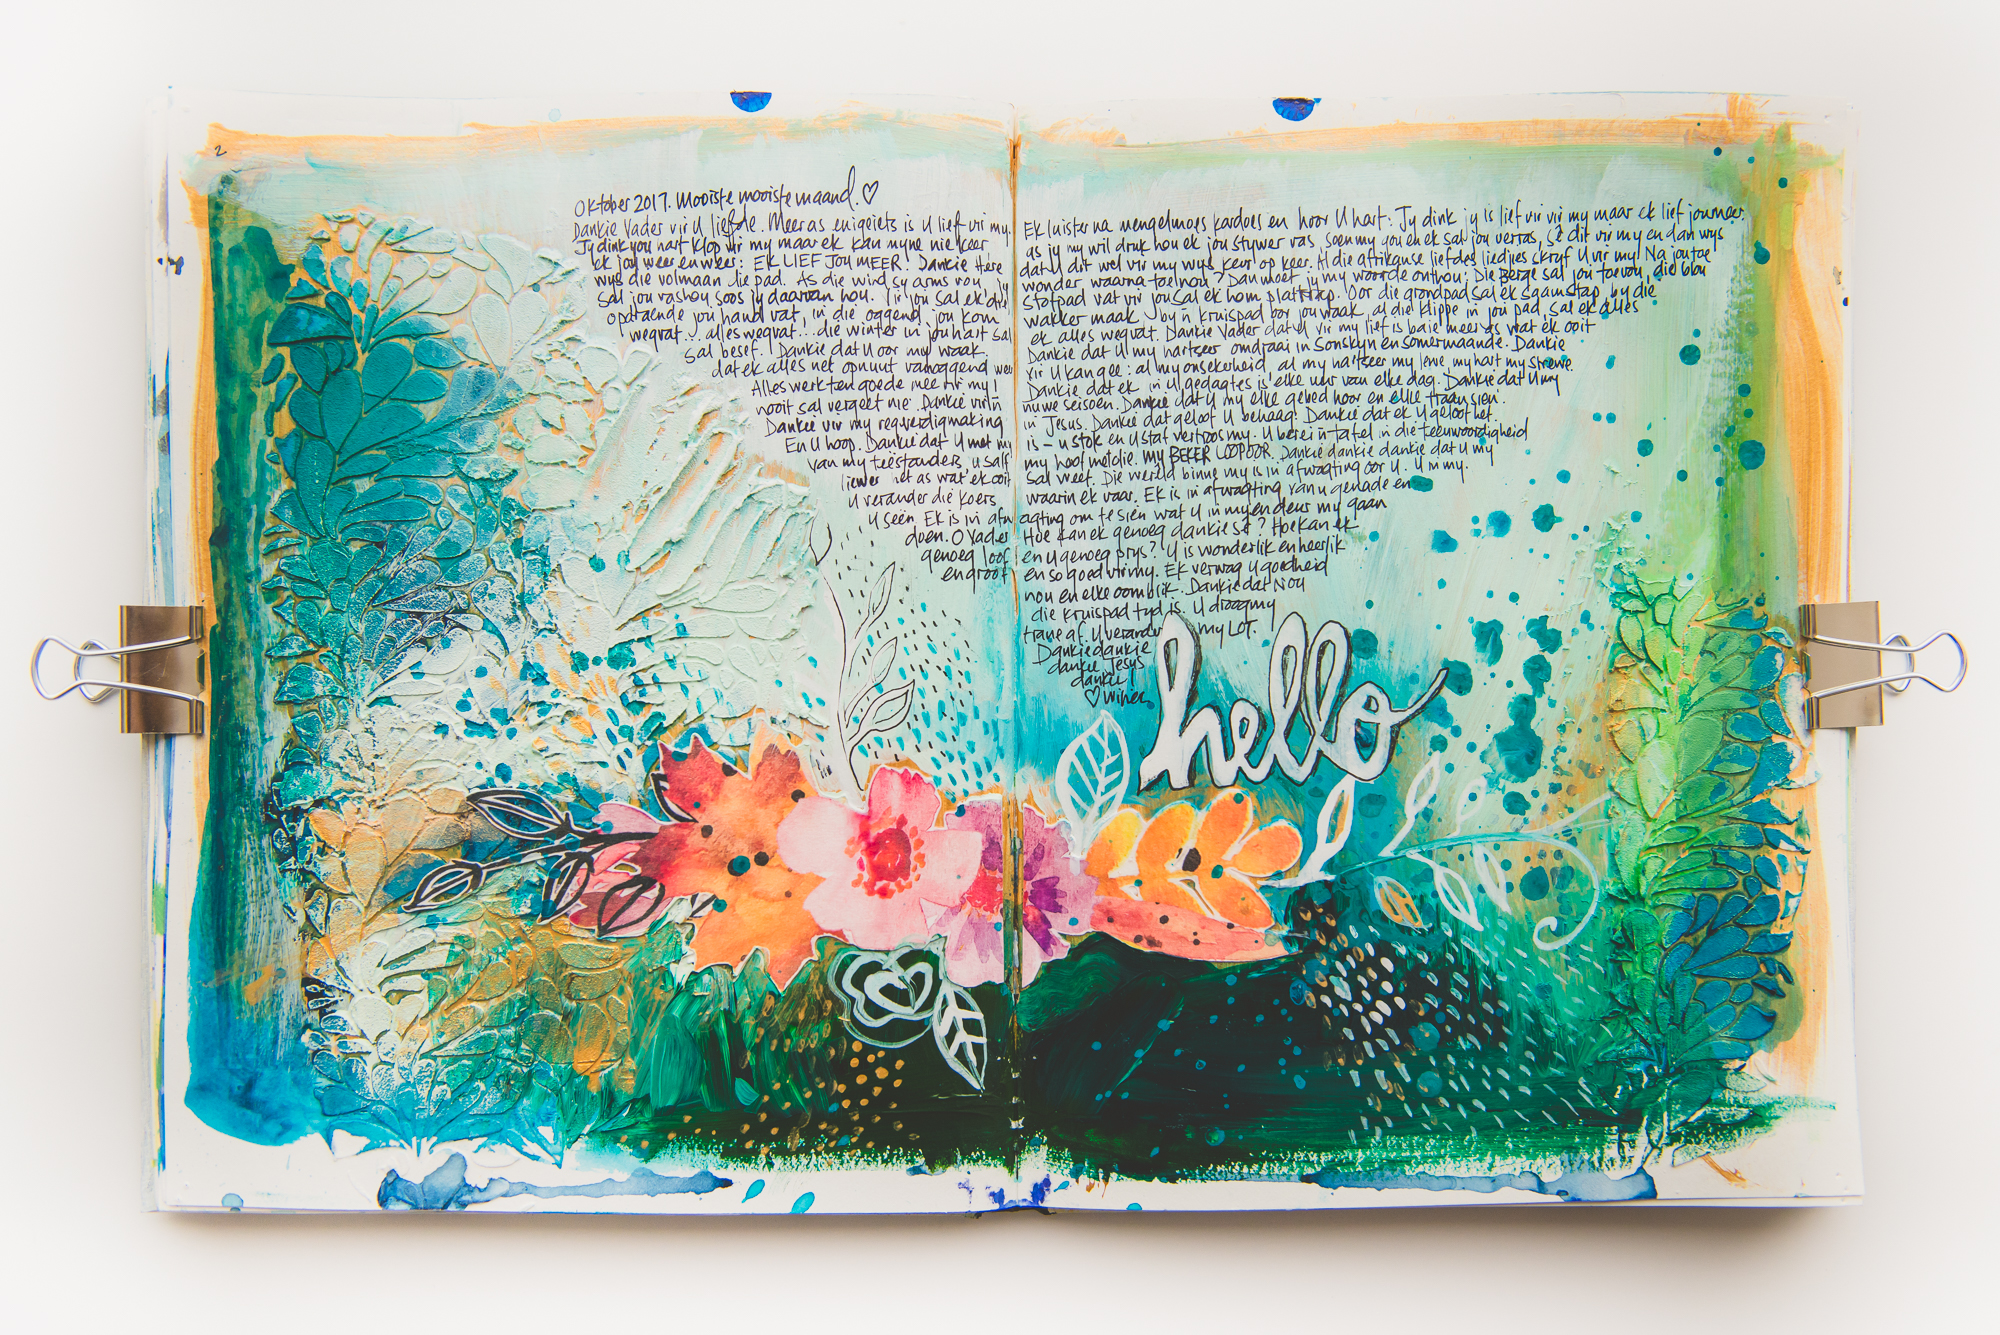 2
Oktober 2017. Mooiste mooiste maand.
Dankie Vader vir U liefde. Meer as enigiets is U lief vir my.
Jy dink jou hart klop vir my maar ek kan myne nie keer
ek jou weer en weer: EK LIEF JOU MEER! Dankie Here
wys die volmaan die pad. As die wind sy arms vou, jy
sal jou vashou soos jy daarvan hou. Vir jou sal ek drie
opdraende jou hand vat, in die oggend jou kom
wegvat... alles wegvat... die winter in jou hart sal
sal besef. Dankie dat U oor my waak.
dat ek alles net opnuut vanoggend weer
Alles werk ten goede mee vir my!
nooit sal vergeet nie. Dankie vir 'n
Dankie vir my regverdigmaking
En U hoop. Dankie dat U met my
van my teëstanders, U salf
liewer het as wat ek ooit
U verander die koers
U seën. Ek is in afw
doen. O Vader
genoeg loof
en groot
Ek luister na mengelmoes kardoes en hoor U hart: Jy dink jy is lief vir my maar ek lief jou meer.
as jy my wil druk hou ek jou stywer vas, soen my jou en ek sal jou verras, sê dit vir my en dan wys
dat U dit wel vir my wys keer op keer. Al die afrikaanse liefdes liedjies skryf U vir my! Na jou toe
wonder waarna toe nou? Dan moet jy my woorde onthou: Die Berge sal jou toevou, die blou
stofpad vat vir jou sal ek hom plat trap. Oor die grondpad sal ek saamstap, by die
wakker maak by 'n kruispad oor jou waak, al die klippe in jou pad, sal ek alles
ek alles wegvat. Dankie Vader dat U vir my lief is baie meer as wat ek ooit
Dankie dat U my hartseer omdraai in Sonskyn en somermaande. Dankie
vir U kan gee: al my onsekerheid, al my hartseer my lewe my hart my strewe.
Dankie dat ek in U gedagtes is elke uur van elke dag. Dankie dat U my
nuwe seisoen. Dankie dat U my elke gebed hoor en elke traan sien.
in Jesus. Dankie dat geloof U behaag! Dankie dat ek U geloof het.
is - U stok en U staf vertroos my. U berei 'n tafel in die teenwoordigheid
my hoof met olie. my BEKER LOOP OOR. Dankie dankie dankie dat U my
sal weet. Die wêreld binne my is in afwagting oor U. U in my.
waarin ek vaar. Ek is in afwagting van U genade en
agting om te sien wat U in my en deur my gaan
Hoe kan ek genoeg dankie sê? Hoe kan ek
en U genoeg prys? U is wonderlik en heerlik
en so goed vir my. Ek verwag U goedheid
nou en elke oomblik. Dankie dat Nou
die kruispad tyd is. U droog my
trane af. U verander my LOT.
Dankie dankie
dankie Jesus
dankie!
hello